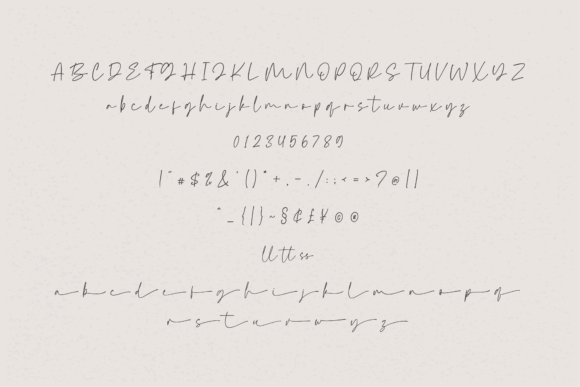 A B C D E F G H I J K L M N O P Q R S T U V W X Y Z
a b c d e f g h i j k l m n o p q r s t u v w x y z
0 1 2 3 4 5 6 7 8 9
! " # $ % & ' ( ) * + , - . / : ; < = > ? @ [ ]
^ _ { | } ~ § ¢ £ ¥ © ®
ll tt ss
a b c d e f g h i j k l m n o p q
r s t u v w y z